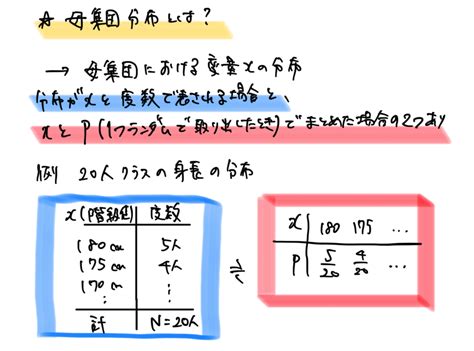 ☆ 母集団分布とは?
→ 母集団における変量xの分布
分布がxと度数で表される場合と、
xとP(1つランダムで取り出したとき)でまとめた場合の2つあり
例 20人クラスの身長の分布
x(階級値) 度数
180cm 5人
175cm 4人
170cm ⋮
⋮ ⋮
計 N=20人
⇄
x 180 175 …
P 5/20 4/20 …